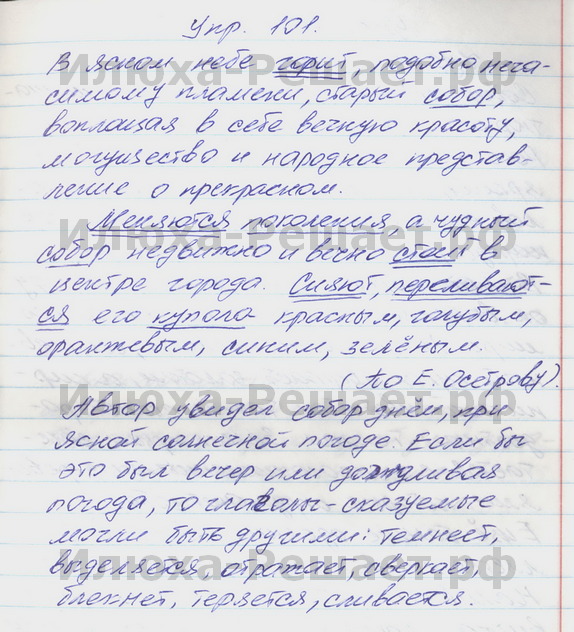 Упр. 101.
В ясном небе горит, подобно нега-
симому пламени, старый собор,
воплощая в себе вечную красоту,
могущество и народное представ-
ление о прекрасном.
Меняются поколения, а чудный
собор недвижно и вечно стоит в
центре города. Сияют, переливают-
ся его купола красным, голубым,
оранжевым, синим, зелёным.
(По Е. Осетрову).
Автор увидел собор днём, при
ясной солнечной погоде. Если бы
это был вечер или дождливая
погода, то глаголы-сказуемые
могли быть другими: темнеет,
выделяется, отражает, сверкает,
блекнет, теряется, сливается.
Илюха-Решает.рф
Илюха-Решает.рф
Илюха-Решает.рф
Илюха-Решает.рф
Илюха-Решает.рф